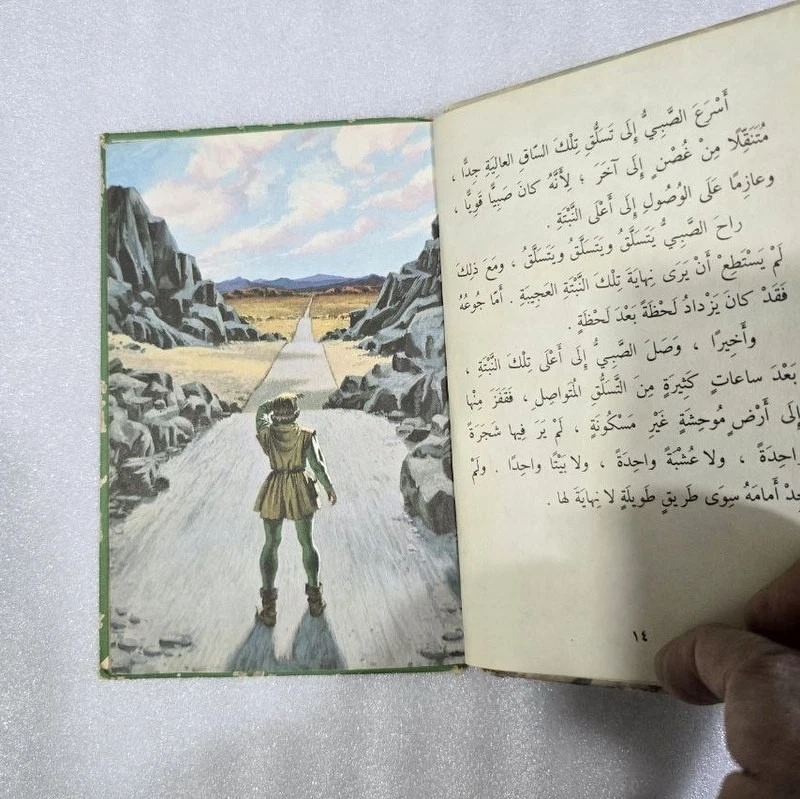 أَسْرَعَ الصَّبِيُّ إِلَى تَسَلُّقِ تِلْكَ السّاقِ العالِيَةِ جِدًّا ،
مُتَنَقِّلًا مِنْ غُصْنٍ إِلَى آخَرَ ؛ لِأَنَّهُ كانَ صَبِيًّا قَوِيًّا ،
وعازِمًا عَلَى الْوُصُولِ إِلَى أَعْلَى النَّبْتَةِ .
راحَ الصَّبِيُّ يَتَسَلَّقُ ويَتَسَلَّقُ ويَتَسَلَّقُ ، ومَعَ ذلِكَ
لَمْ يَسْتَطِعْ أَنْ يَرَى نِهايَةَ تِلْكَ النَّبْتَةِ العَجِيبَةِ . أَمّا جُوعُهُ
فَقَدْ كانَ يَزْدادُ لَحْظَةً بَعْدَ لَحْظَةٍ .
وأَخِيرًا ، وَصَلَ الصَّبِيُّ إِلَى أَعْلَى تِلْكَ النَّبْتَةِ ،
بَعْدَ ساعاتٍ كَثِيرَةٍ مِنَ التَّسَلُّقِ الْمُتَواصِلِ ، فَقَفَزَ مِنْها
إِلَى أَرْضٍ مُوحِشَةٍ غَيْرِ مَسْكُونَةٍ ، لَمْ يَرَ فِيها شَجَرَةً
واحِدَةً ، ولا عُشْبَةً واحِدَةً ، ولا بَيْتًا واحِدًا . ولَمْ
أَمامَهُ سِوَى طَرِيقٍ طَوِيلَةٍ لا نِهايَةَ لَها .
١٤